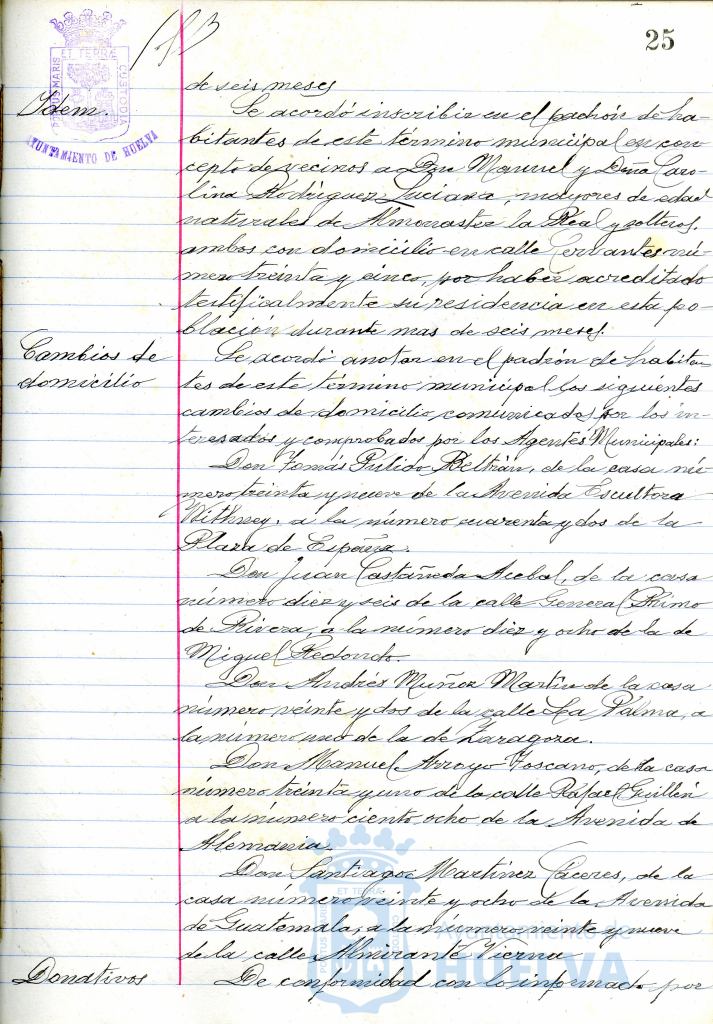 25
PORTUS MARIS ET TERRÆ CUSTODIA
AYUNTAMIENTO DE HUELVA
de seis meses
Idem.
Se acordó inscribir en el padrón de ha-
bitantes de este término municipal en con-
cepto de vecinos a Don Manuel y Doña Caro-
lina Rodríguez Luciana, mayores de edad
naturales de Almonaster la Real y solteros,
ambos con domicilio en calle Cervantes nú-
mero treinta y cinco, por haber acreditado
testificalmente su residencia en esta po-
blación durante mas de seis meses.
Cambios de
domicilio
Se acordó anotar en el padrón de habitan-
tes de este término municipal los siguientes
cambios de domicilio, comunicados por los in-
teresados y comprobados por los Agentes Municipales:
Don Tomás Pulido Beltrán, de la casa nú-
mero treinta y nueve de la Avenida Escultora
Withney, a la número cuarenta y dos de la
Plaza de España.
Don Juan Castañeda Acebal, de la casa
número diez y seis de la calle General Primo
de Rivera, a la número diez y ocho de la de
Miguel Redondo.
Don Andrés Muñoz Martín de la casa
número veinte y dos de la calle La Palma, a
la número uno de la de Zaragoza.
Don Manuel Arroyo Toscano, de la casa
número treinta y uno de la calle Rafael Guillén
a la número ciento ocho de la Avenida de
Alemania.
Don Santiago Martínez Cáceres, de la
casa número veinte y ocho de la Avenida
de Guatemala, a la número veinte y nueve
de la calle Almirante Vierna
Donativos
De conformidad con lo informado por
PORTUS MARIS ET TERRÆ CUSTODIA
Ayuntamiento de
HUELVA